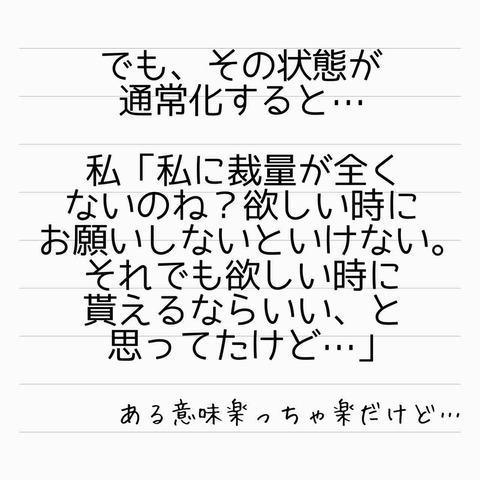 でも、その状態が
通常化すると…
私「私に裁量が全く
ないのね？欲しい時に
お願いしないといけない。
それでも欲しい時に
貰えるならいい、と
思ってたけど…」
ある意味楽っちゃ楽だけど…